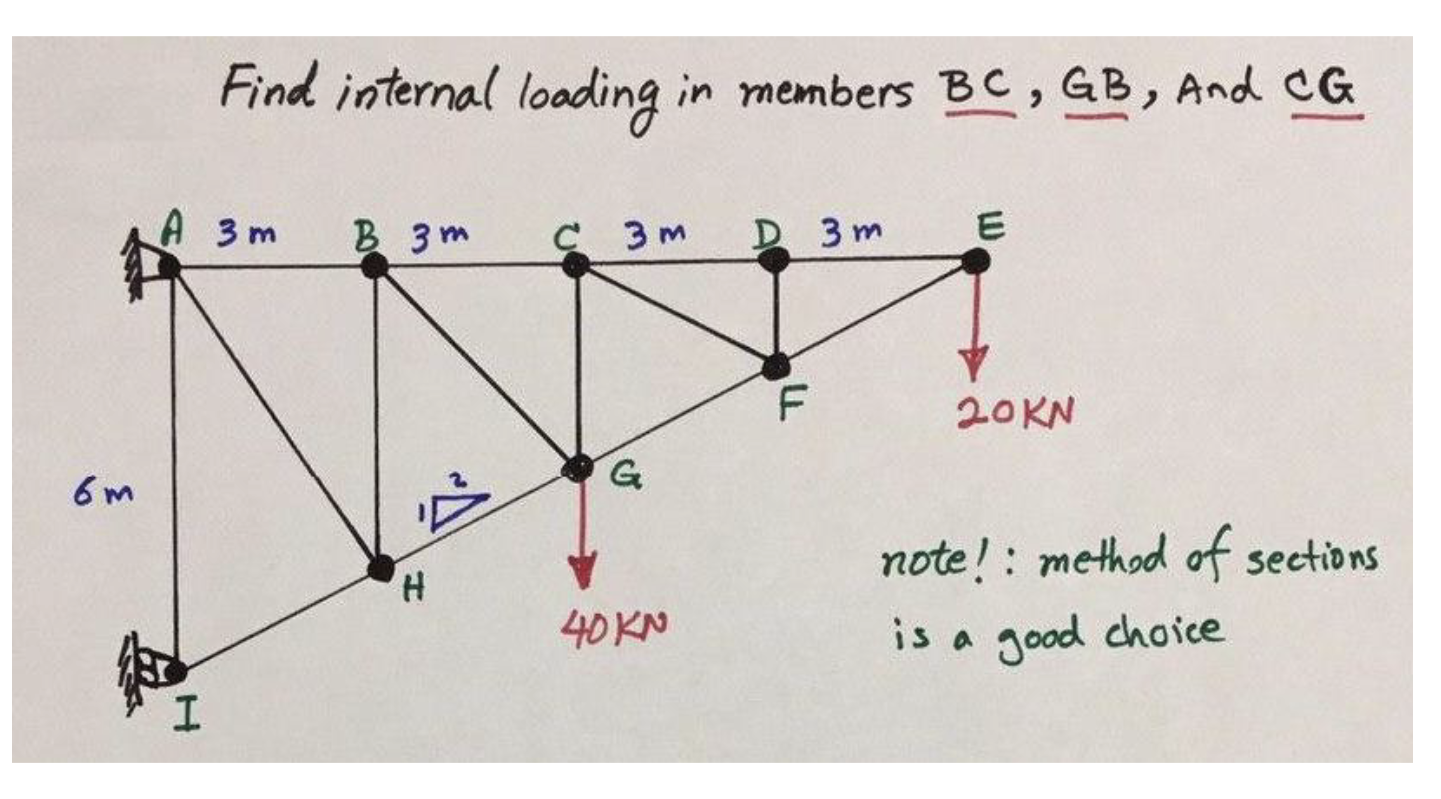 Find internal loading in members BC, GB, And CG
A 3m B 3m C 3m D 3m E
20KN
F
G
2
1
6m
H
note!: method of sections
is a good choice
40KN
I